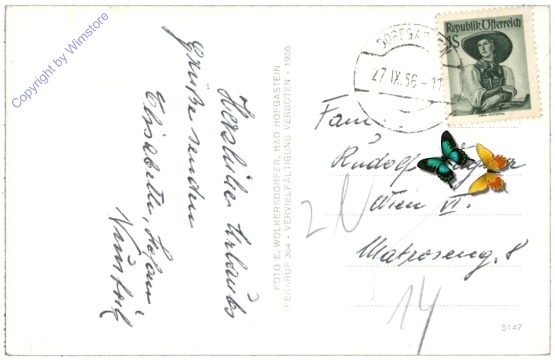 Copyright by Wimstore
Herzliche Urlaubs
Grüße senden
Elisabeth, Stefan
FOTO E. WOLKERSDORFER, BAD HOFGASTEIN
FERNRUF 364 - VERVIELFÄLTIGUNG VERBOTEN - 1956
DORFGASTEIN
27.IX.56
Republik Österreich
1S
Fam
Rudolf
Wien VI.
Matroseng. 8
14
5147